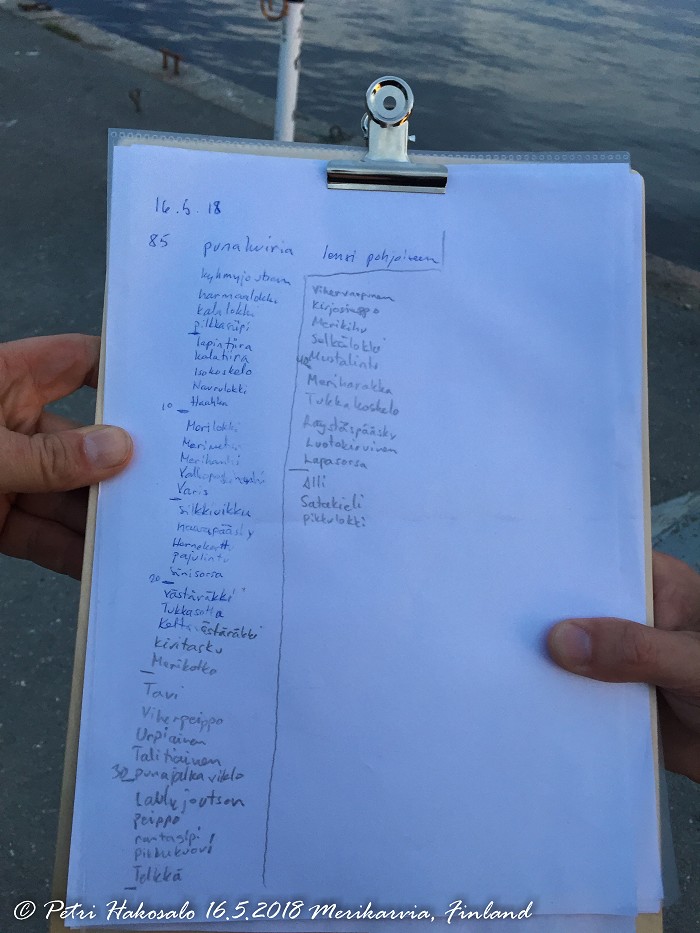 16.5.18
85 punakuiria lensi pohjoiseen
kyhmyjoutsen
harmaalokki
kalalokki
pilkkasiipi
lapintiira
kalatiira
Isokoskelo
Naurulokki
10 Haahka
Merilokki
Merimetso
Merihanhi
Valkoposkihanhi
Varis
Silkkiuikku
Haarapääsky
Hernekerttu
pajulintu
20 Sinisorsa
västäräkki
Tukkasotka
Keltavästäräkki
kivitasku
Merikotka
Tavi
Viherpeippo
Urpiainen
Talitiainen
30 punajalkaviklo
Laulujoutsen
peippo
rantasipi
pikkukuovi!
Telkkä
Vihervarpunen
Kirjosieppo
Merikihu
Selkälokki
40 Mustalintu
Meriharakka
Tukkakoskelo
Räystäspääsky
Luotokirvinen
Lapasorsa
Alli
Satakieli
pikkulokki
© Petri Hakosalo 16.5.2018 Merikarvia, Finland